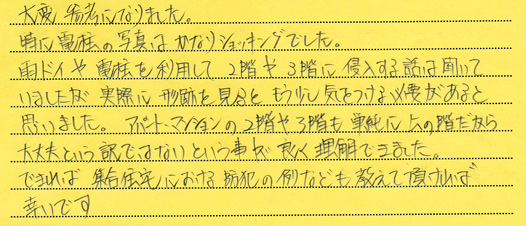 大変 参考になりました。
特に電柱の写真は かなりショッキングでした。
雨ドイや 電柱を利用して 2階や 3階に 侵入する話は聞いて
いましたが 実際に 形跡を見ると もう少し気をつける必要があると
思いました。アパート・マンションの 2階や3階も 単純に上の階だから
大丈夫という訳ではないという事が 良く 理解できました。
できれば 集合住宅における 防犯の例なども 教えて頂ければ
幸いです